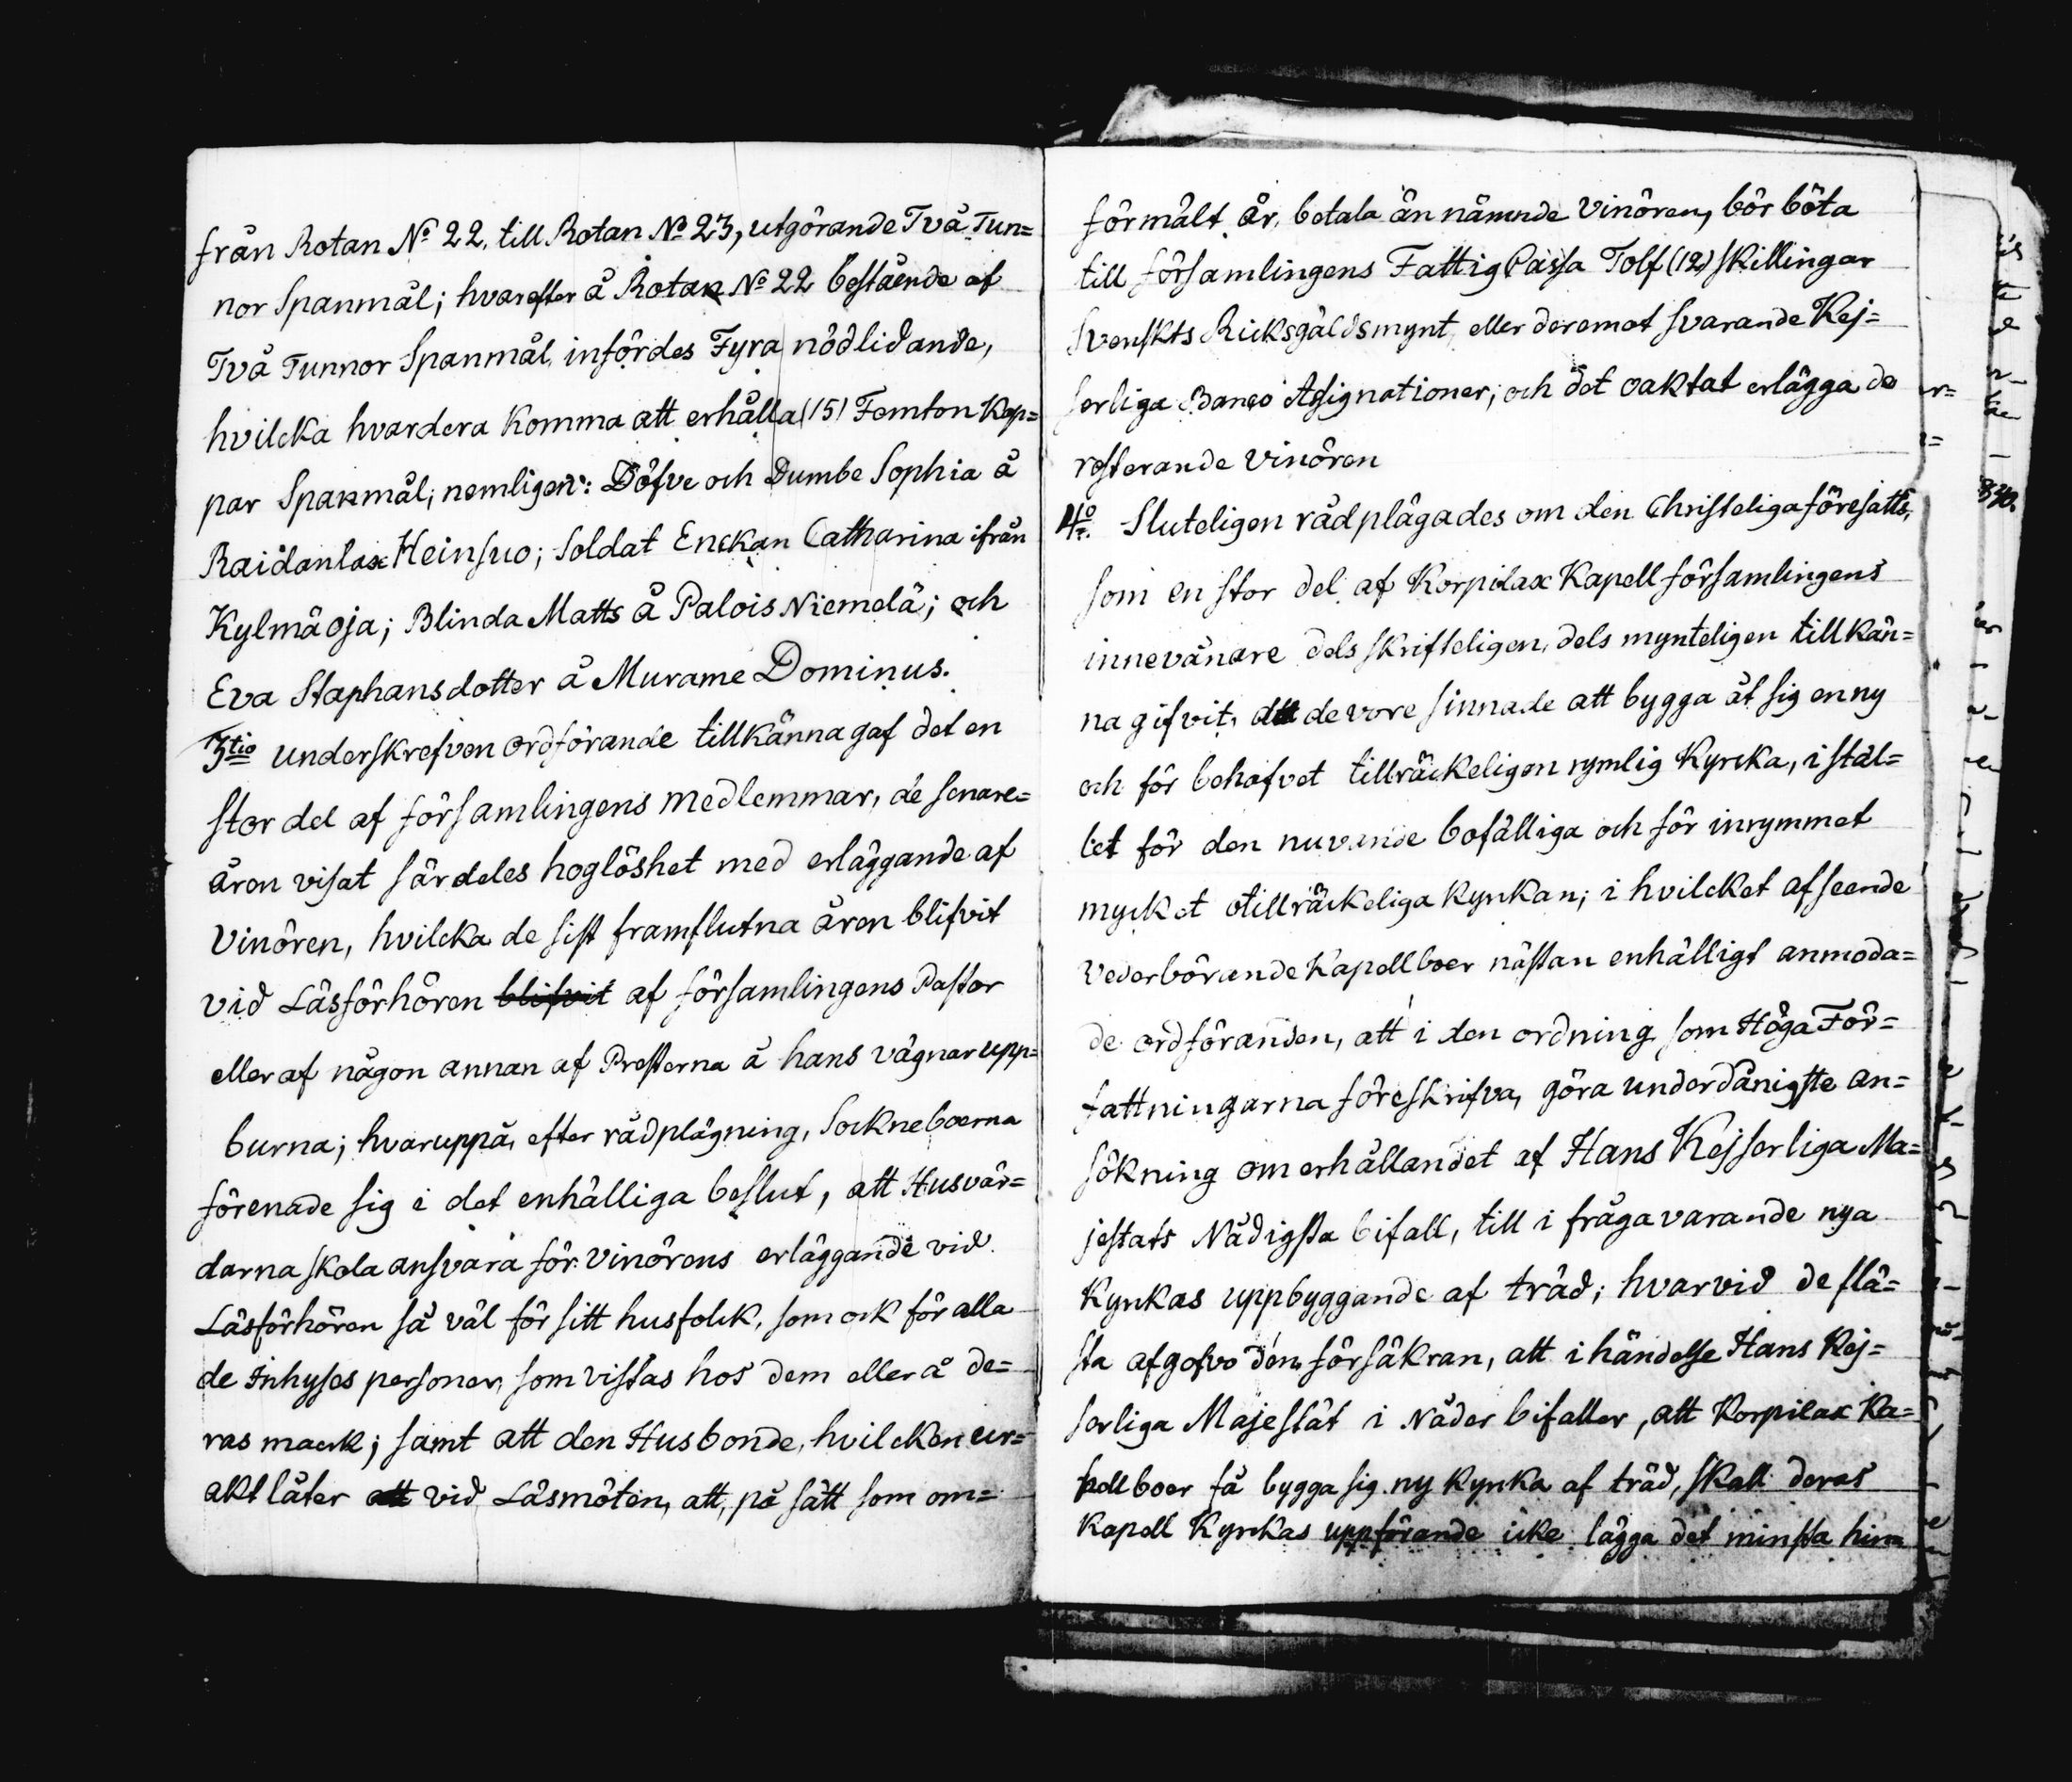 från Rotan No 22, till Rotan No 23, utgörande Två Tun=
nor Spanmål; hvarefter å Rotan No 22 bestående af
Två Tunnor Spanmål, infördes Fyra nödlidande,
hvilcka hvardera komma att erhålla (15) Femton Kap=
par Spanmål; nemligen: Döfve och Dumbe Sophia å
Raidanlax Heinsuo; Soldat Enckan Catharina ifrån
Kylmäoja; Blinda Matts å Palois Niemelä; och
Eva Staphansdotter å Murame Dominus.
3tio underskrefven ordförande tillkännagaf det en
stor del af församlingens medlemmar, de senare=
åren visat särdeles hoglöshet med erläggande af
Vinören, hvilcka de sist framflutna åren blifvit
vid Läsförhören blifvit af församlingens Pastor
eller af någon annan af Presterna å hans vägnar upp=
burna; hvaruppå, efter rådplägning, Sockneboerna
förenade sig i det enhälliga beslut, att Husvär=
darna skola ansvara för vinörens erläggande vid
Läsförhören så väl för sitt husfolck, som ock för alla
de Inhyses personer, som vistas hos dem eller å de=
ras maerk; samt att den Husbonde, hvilcken eur=
akt låter att vid Läsmöten, att, på sätt som om=
förmält är, betala än nämnde Vinören, bör böta
till församlingens Fattig Cassa Tolf (12) Skillingar
Svenskts Ricksgäldsmynt, eller deremot svarande Kej=
serliga Banco Assignationer; och det oaktat erlägga de
resterande Vinören
4o. Sluteligen rådplägades om den Christeliga föresatts,
som en stor del af Korpilax Kapell församlingens
innevånare dels skrifteligen, dels mynteligen tillkän=
na gifvit, att de vore sinnade att bygga åt sig en ny
och för behofvet tillräckeligen rymlig Kyrcka, i stäl=
let för den nuvande bofälliga och för inrymmet
mycket otillräckeliga kyrkan; i hvilcket afseende
Vederbörande Kapellboer nästan enhälligt anmoda=
de ordföranden, att i den ordning som Höga För=
fattningarna föreskrifva, göra underdånigste an=
sökning om erhållandet af Hans Kejserliga Ma=
jestäts Nådigsta bifall, till i fråga varande nya
Kyrkas uppbyggande af träd; hvarvid de flä=
sta afgofvo den försäkran, att i händelse Hans Kej=
serliga Majestät i Nåder bifaller, att Korpilax Ka=
pellboer få bygga sig ny kyrka af träd, skall deras
Kapell Kyrckas uppförande icke lägga det minsta hin=